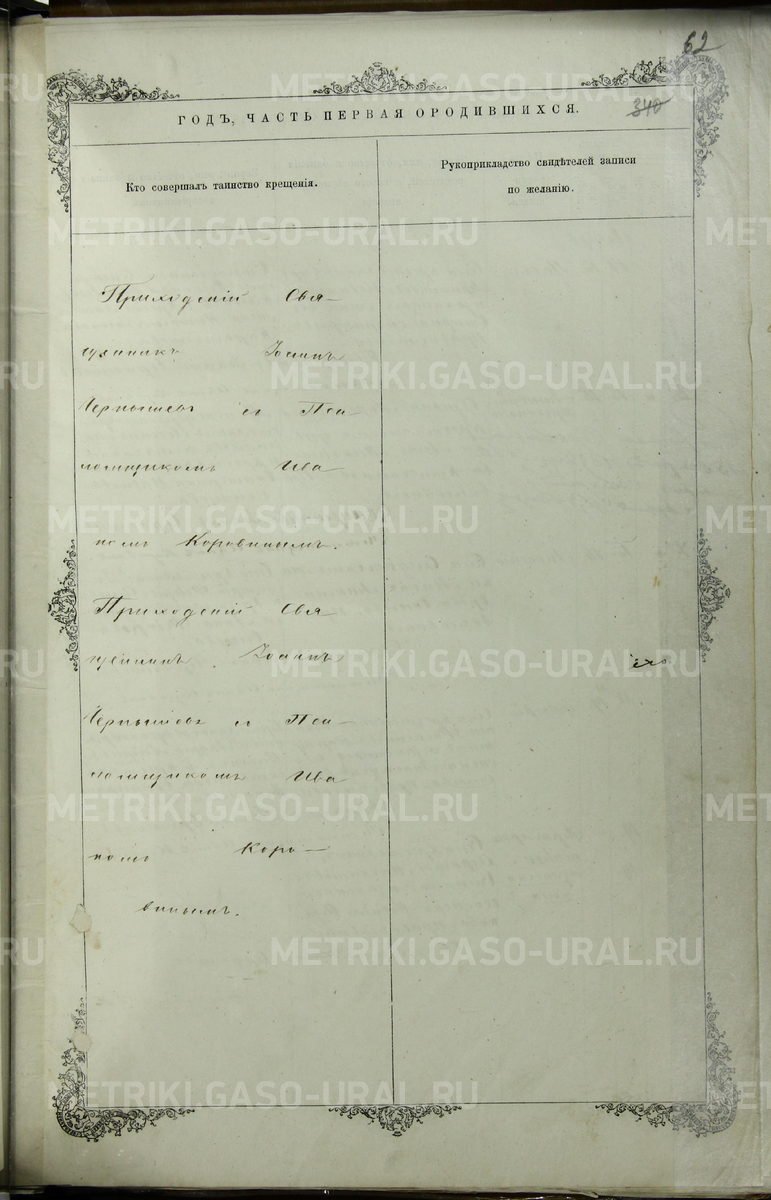 62
340
ГОДЪ, ЧАСТЬ ПЕРВАЯ ОРОДИВШИХСЯ.
Кто совершалъ таинство крещенія.
Рукоприкладство свидѣтелей записи
по желанію.
Приходскій Свя-
щенникъ Іоаннъ
Чернышевъ съ Пса
ломщикомъ Ива
номъ Коровинымъ.
Приходскій Свя
щенникъ Іоаннъ
Чернышовъ съ Пса-
ломщикомъ Ива
номъ Коро-
винымъ.
METRIKI.GASO-URAL.RU